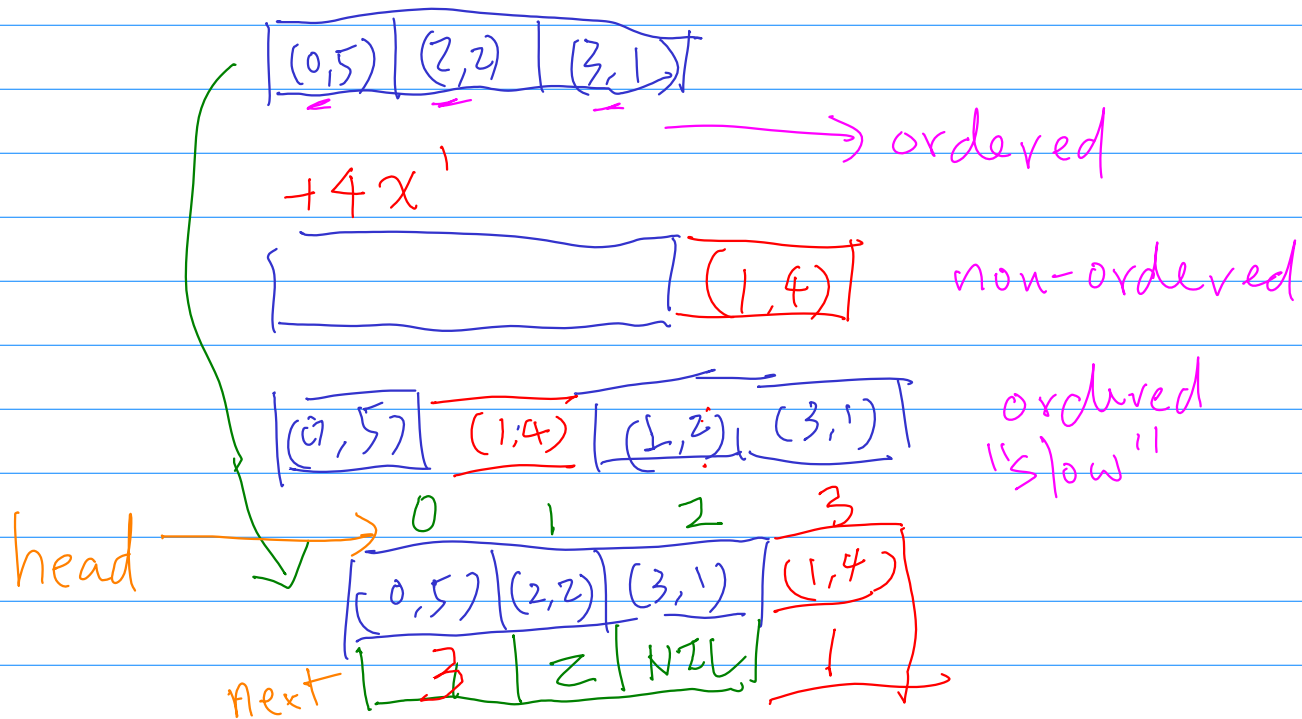 (0,5) (2,2) (3,1)
ordered
+4x¹
(1,4) non-ordered
(0,5) (1,4) (1,2) (3,1) ordered
"slow"
0 1 2 3
head
(0,5) (2,2) (3,1) (1,4)
next 3 2 NIL 1